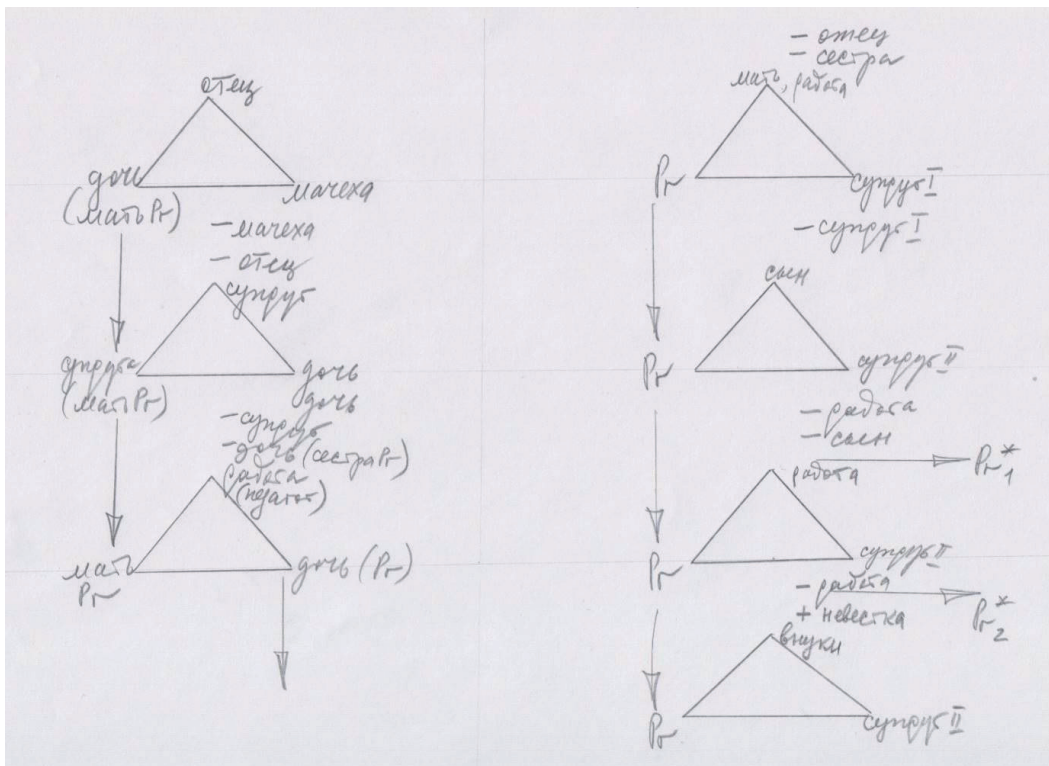 отец
дочь
(мать Pr)
мачеха
- мачеха
- отец
супруг
супруга
(мать Pr)
дочь
дочь
- супруг
- дочь (сестра Pr)
работа
(педагог)
мать
Pr
дочь (Pr)
- отец
- сестра
мать, работа
Pr
супруг I
- супруг I
сын
Pr
супруг II
- работа
- сын
работа
Pr*1
Pr
супруг II
- работа
+ невестка
Pr*2
внуки
Pr
супруг II